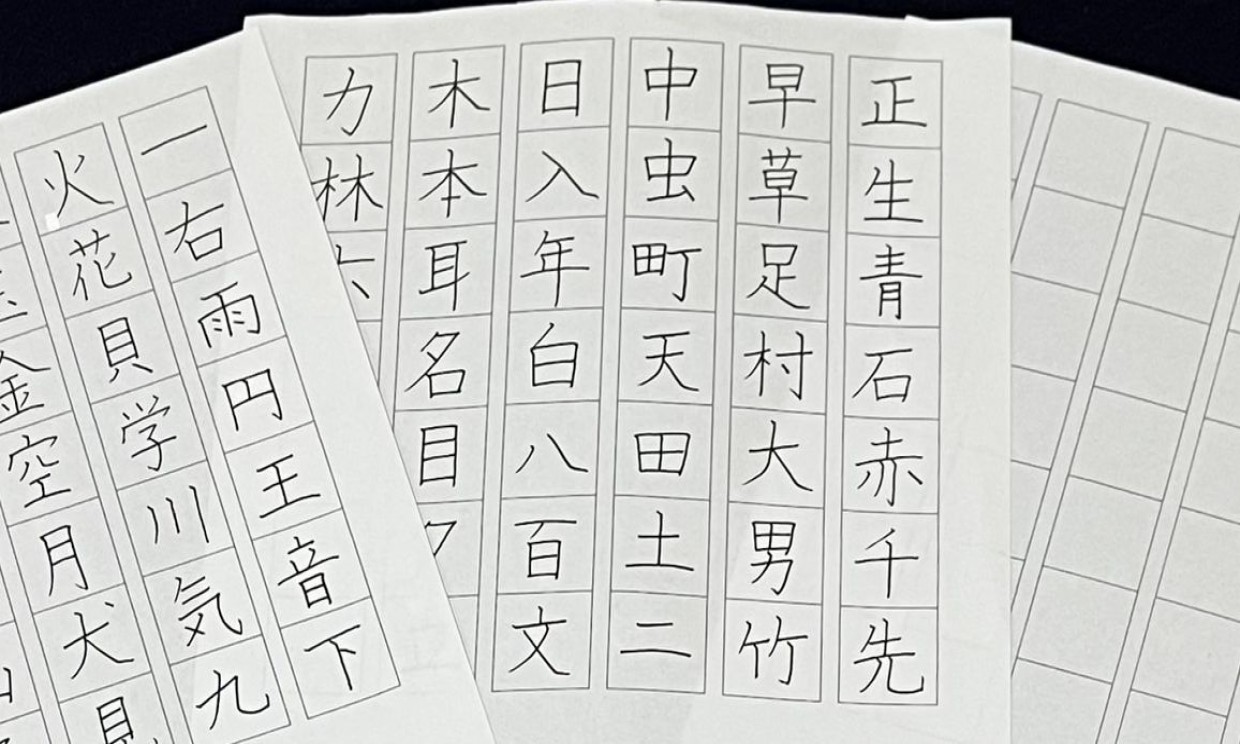 正生青石赤千先
早草足村大男竹
中虫町天田土二
日入年白八百文
木本耳名目
力林六
一右雨円王音下
火花貝学川気九
金空月犬見